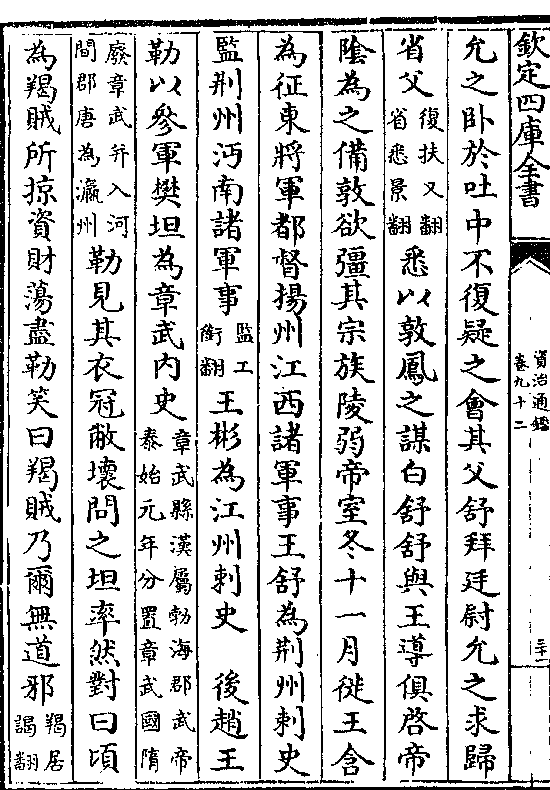 欽定四庫全書
資治通鑑
卷九十二
允之卧於吐中不復疑之會其父舒拜廷尉允之求歸
省父復扶又翻省悉景翻悉以敦鳳之謀白舒舒與王導俱啓帝
陰為之備敦欲彊其宗族陵弱帝室冬十一月徙王含
為征東將軍都督揚州江西諸軍事王舒為荆州刺史
監荆州沔南諸軍事監工銜翻王彬為江州刺史　後趙王
勒以參軍樊坦為章武內史章武縣漢屬勃海郡武帝泰始元年分置章武國隋
廢章武并入河間郡唐為瀛州勒見其衣冠敝壞問之坦率然對曰頃
為羯賊所掠資財蕩盡勒笑曰羯賊乃爾無道邪羯居謁翻